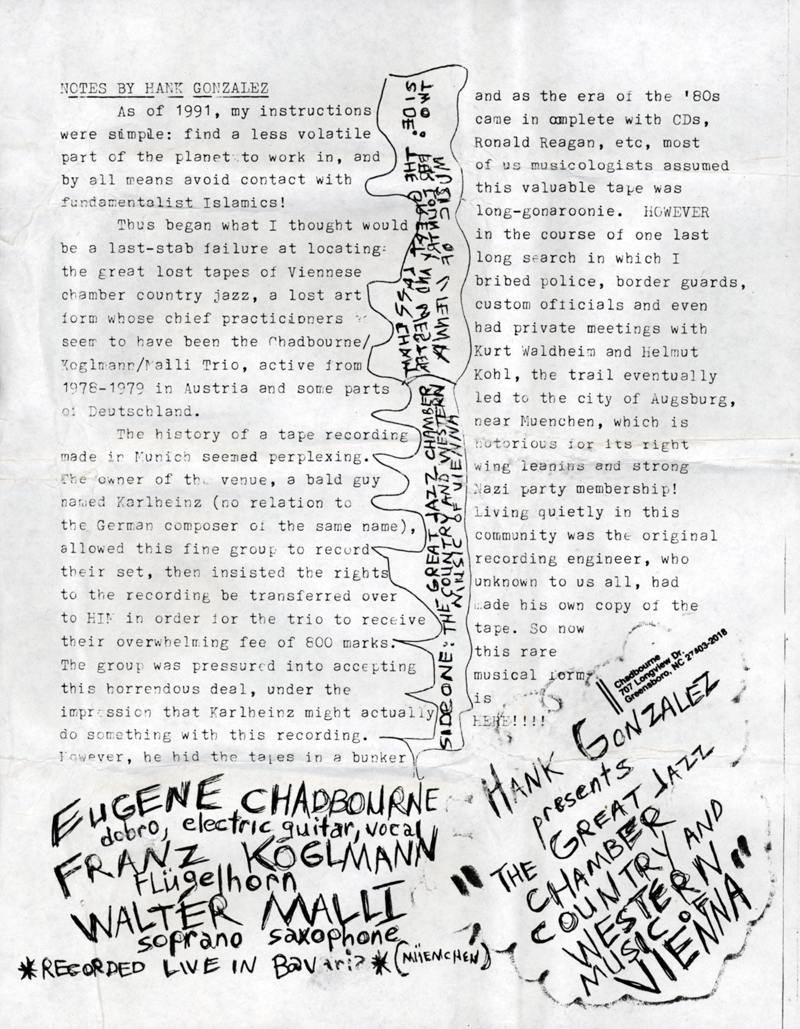 NOTES BY HANK GONZALEZ
As of 1991, my instructions
were simple: find a less volatile
part of the planet to work in, and
by all means avoid contact with
fundamentalist Islamics!
Thus began what I thought would
be a last-stab failure at locating
the great lost tapes of Viennese
chamber country jazz, a lost art
form whose chief practicioners
seem to have been the Chadbourne/
Koglmann/Malli Trio, active from
1978-1979 in Austria and some parts
of Deutschland.
The history of a tape recording
made in Munich seemed perplexing.
The owner of the venue, a bald guy
named Karlheinz (no relation to
the German composer of the same name),
allowed this fine group to record
their set, then insisted the rights
to the recording be transferred over
to HIM in order for the trio to receive
their overwhelming fee of 800 marks.
The group was pressured into accepting
this horrendous deal, under the
impression that Karlheinz might actually
do something with this recording.
However, he hid the tapes in a bunker
SIDE ONE: THE GREAT JAZZ CHAMBER
COUNTRY AND WESTERN
MUSIC OF VIENNA
SIDE TWO:
and as the era of the '80s
came in complete with CDs,
Ronald Reagan, etc, most
of us musicologists assumed
this valuable tape was
long-gonaroonie. HOWEVER
in the course of one last
long search in which I
bribed police, border guards,
custom officials and even
had private meetings with
Kurt Waldheim and Helmut
Kohl, the trail eventually
led to the city of Augsburg,
near Muenchen, which is
notorious for its right
wing leanins and strong
Nazi party membership!
Living quietly in this
community was the original
recording engineer, who
unknown to us all, had
made his own copy of the
tape. So now
this rare
musical form
is
HERE!!!!
Chadbourne
707 Longview Dr.
Greensboro, NC 27403-2018
HANK GONZALEZ
presents
"THE GREAT JAZZ
CHAMBER
COUNTRY AND
WESTERN
MUSIC OF
VIENNA"
EUGENE CHADBOURNE
dobro, electric guitar, vocal
FRANZ KOGLMANN
Flügelhorn
WALTER MALLI
soprano saxophone
*RECORDED LIVE IN BaVaria* (MÜENCHEN)